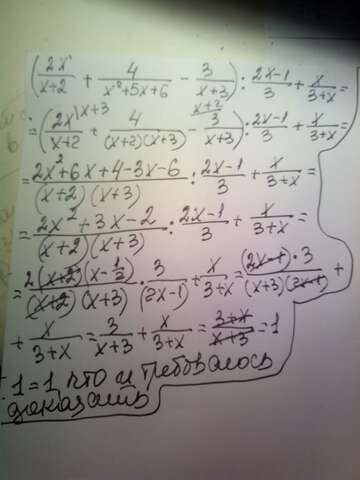 (2x/(x+2) + 4/(x²+5x+6) - 3/(x+3)) : (2x-1)/3 + x/(3+x) =
= (2x^(x+3)/(x+2) + 4/((x+2)(x+3)) - 3^(x+2)/(x+3)) : (2x-1)/3 + x/(3+x) =
= (2x²+6x+4-3x-6)/((x+2)(x+3)) : (2x-1)/3 + x/(3+x) =
= (2x²+3x-2)/((x+2)(x+3)) : (2x-1)/3 + x/(3+x) =
= 2(x+2)(x-1/2)/((x+2)(x+3)) · 3/(2x-1) + x/(3+x) = (2x-1)·3/((x+3)(2x-1)) +
+ x/(3+x) = 3/(x+3) + x/(3+x) = (3+x)/(x+3) = 1
1=1, что и требовалось
доказать